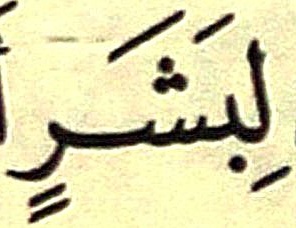 لِبَشَرٍ